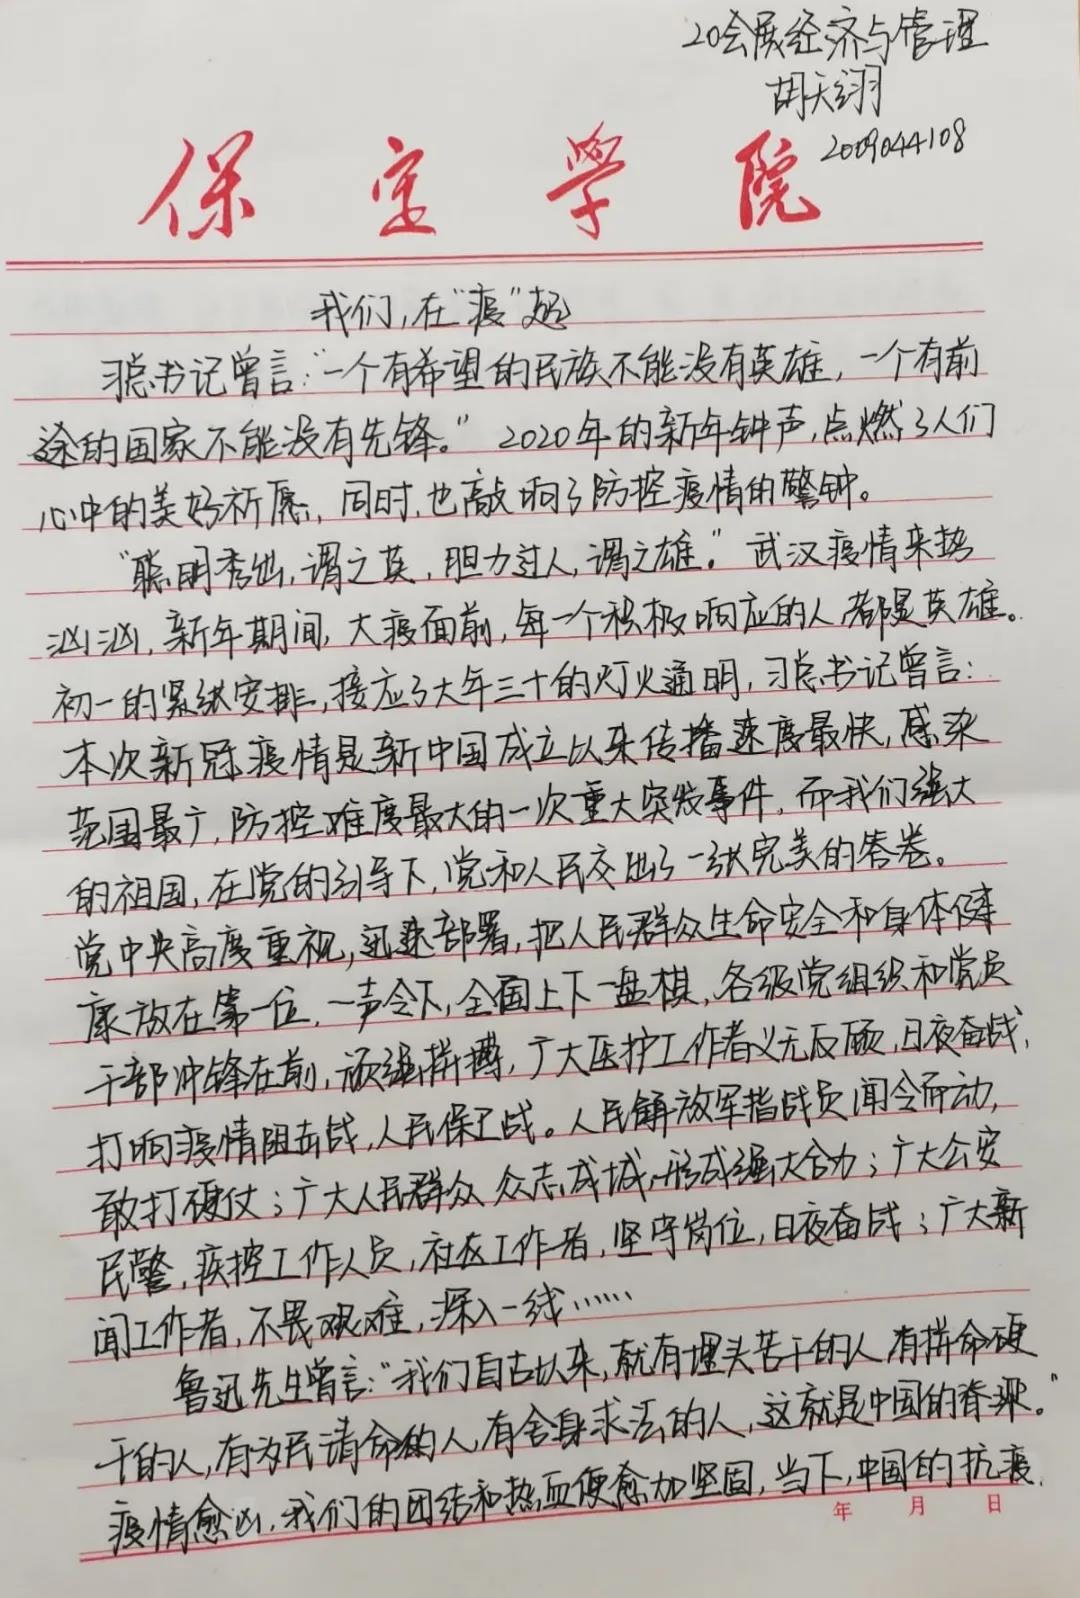 20会展经济与管理
胡天翊
2009044108
保定学院
我们,在"疫"起
习总书记曾言:"一个有希望的民族不能没有英雄,一个有前
途的国家不能没有先锋。"2020年的新年钟声,点燃了人们
心中的美好祈愿,同时,也敲响了防控疫情的警钟。
"聪明秀出,谓之英,胆力过人,谓之雄。"武汉疫情来势
汹汹,新年期间,大疫面前,每一个积极响应的人都是英雄。
初一的紧张安排,接应了大年三十的灯火通明,习总书记曾言:
本次新冠疫情是新中国成立以来传播速度最快,感染
范围最广,防控难度最大的一次重大突发事件,而我们强大
的祖国,在党的引导下,党和人民交出了一张完美的答卷。
党中央高度重视,迅速部署,把人民群众生命安全和身体健
康放在第一位,一声令下,全国上下一盘棋,各级党组织和党员
干部冲锋在前,顽强拼搏,广大医护工作者义无反顾,日夜奋战,
打响疫情阻击战,人民保卫战。人民解放军指战员闻令而动,
敢打硬仗;广大人民群众众志成城,形成强大合力;广大公安
民警,疾控工作人员,社区工作者,坚守岗位,日夜奋战;广大新
闻工作者,不畏艰难,深入一线……
鲁迅先生曾言:"我们自古以来,就有埋头苦干的人有拼命硬
干的人,有为民请命的人,有舍身求法的人,这就是中国的脊梁。"
疫情愈凶,我们的团结和热血便愈加坚固,当下,中国的抗疫,
年 月 日